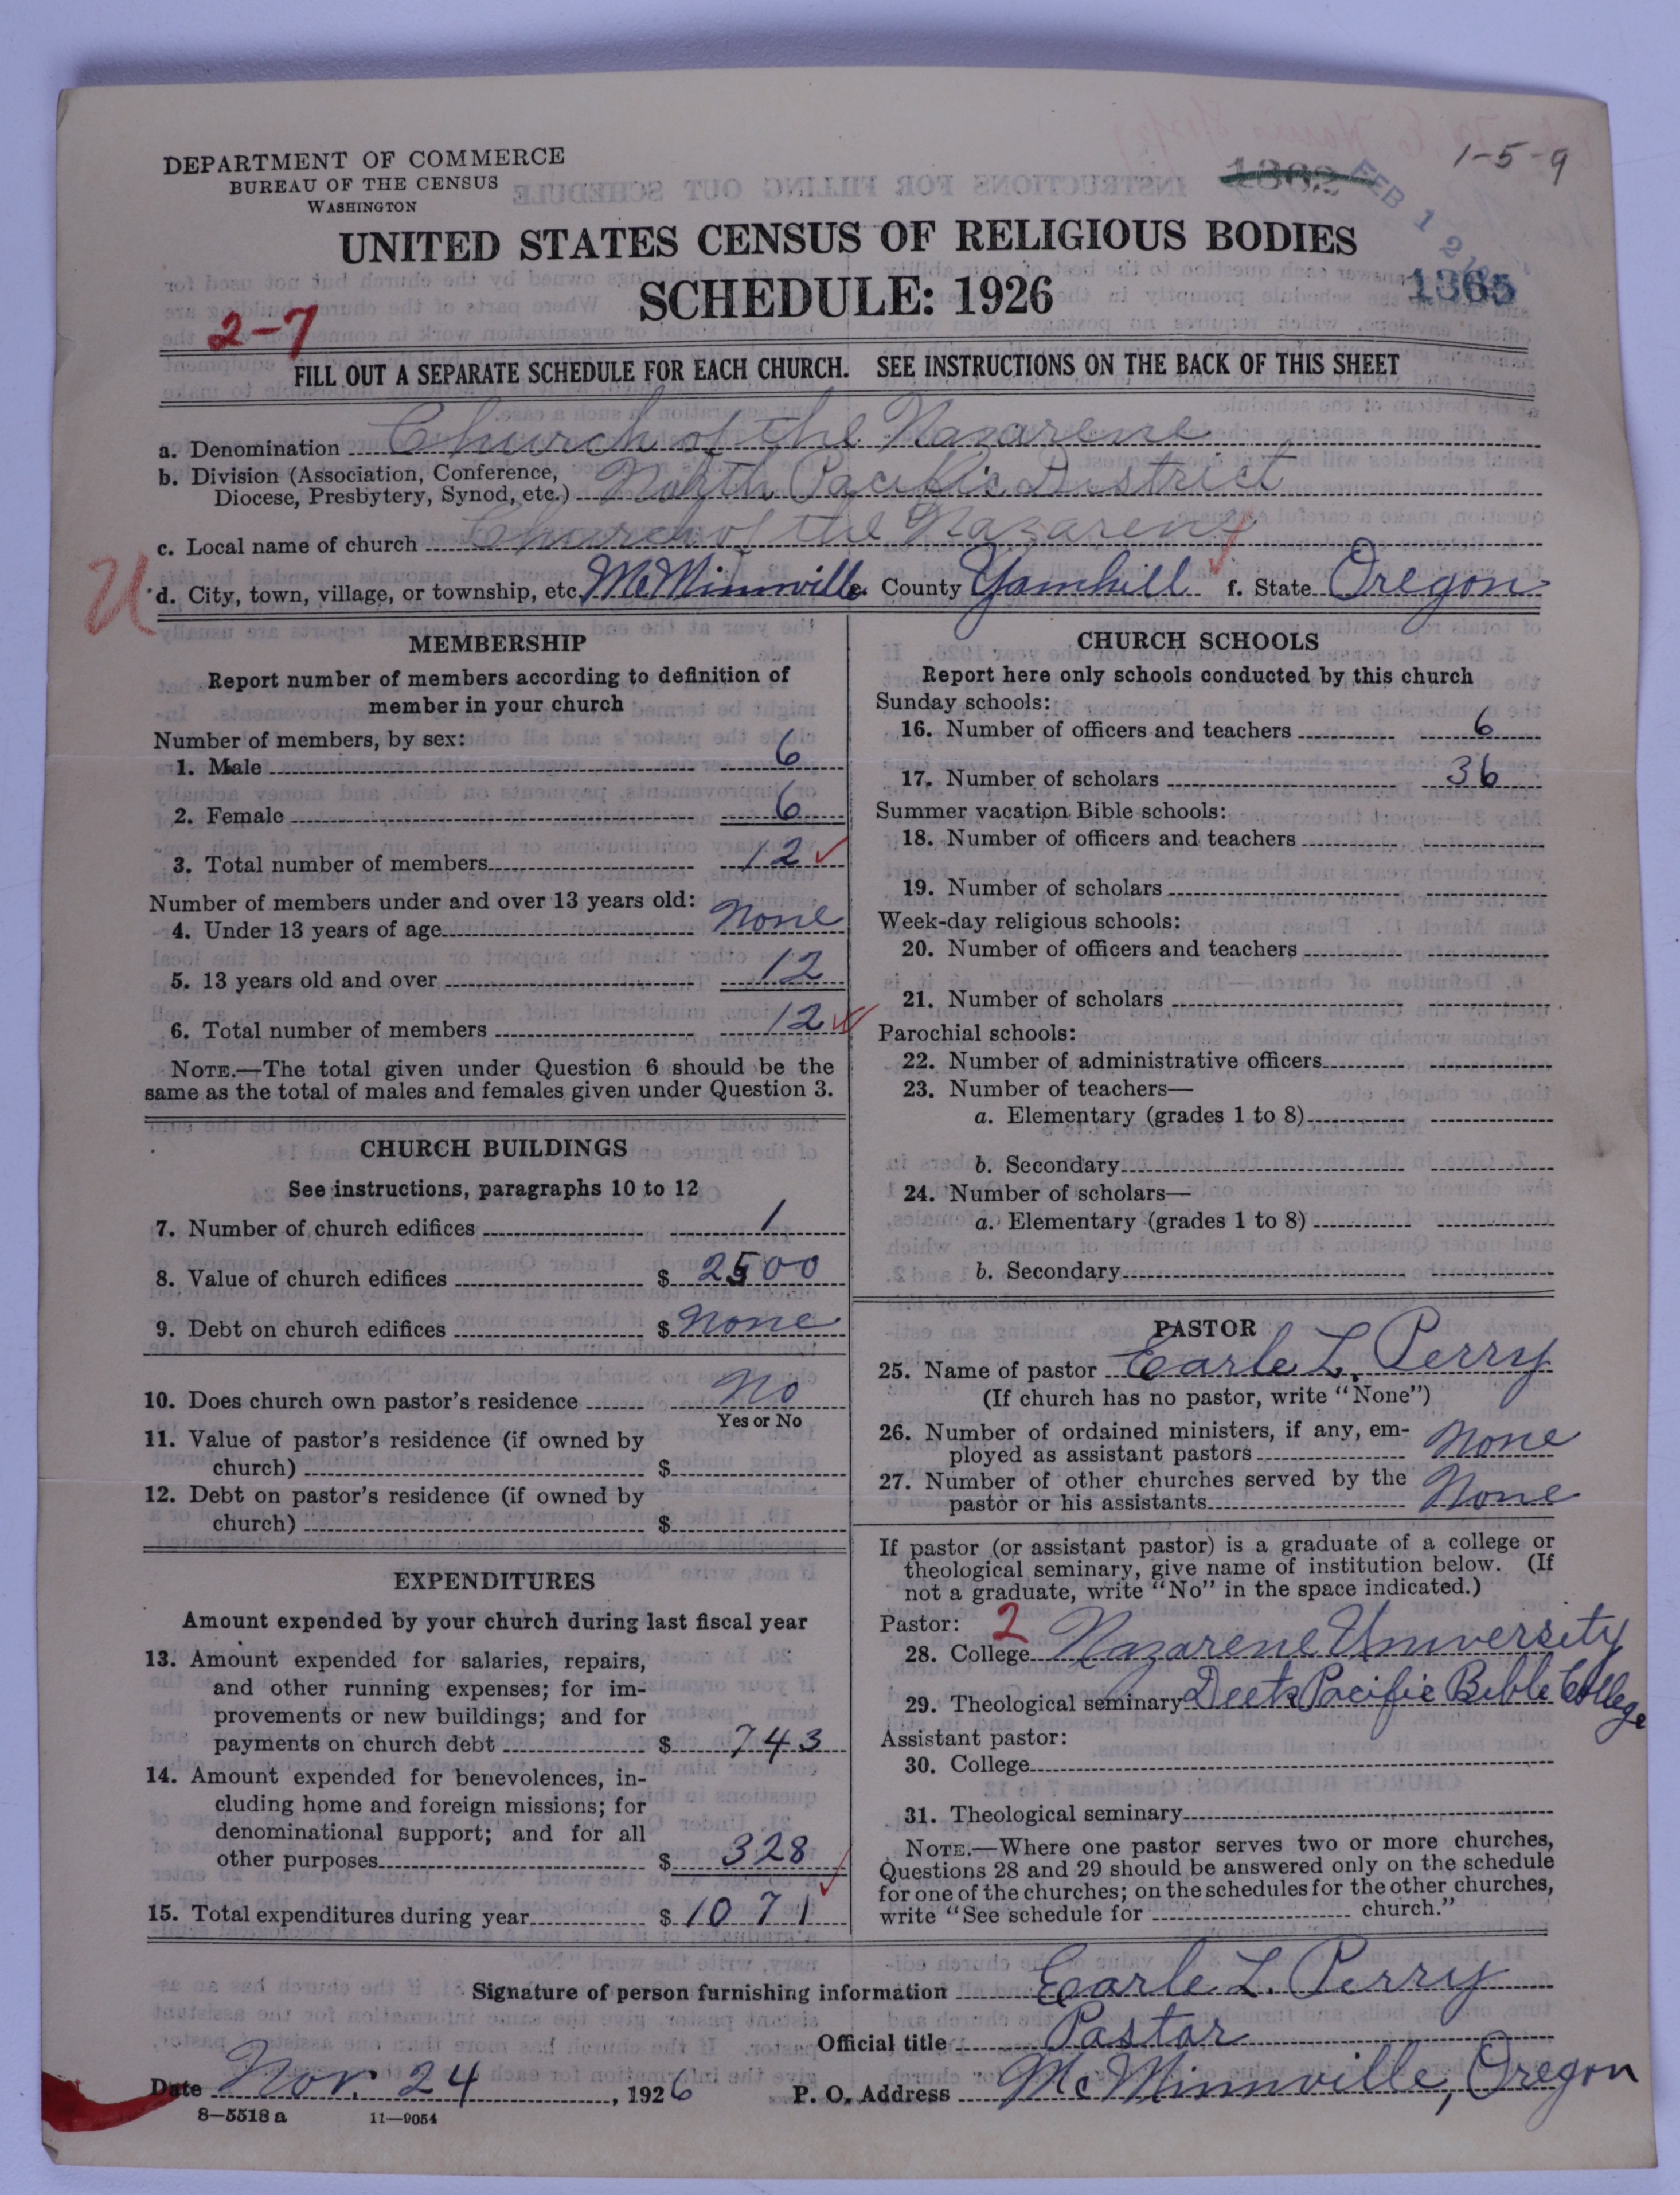 1-5-9
1362
FEB 1 2
1365
DEPARTMENT OF COMMERCE
BUREAU OF THE CENSUS
WASHINGTON
UNITED STATES CENSUS OF RELIGIOUS BODIES
SCHEDULE: 1926
2-7
FILL OUT A SEPARATE SCHEDULE FOR EACH CHURCH. SEE INSTRUCTIONS ON THE BACK OF THIS SHEET
a. Denomination Church of the Nazarene
b. Division (Association, Conference,
Diocese, Presbytery, Synod, etc.) North Pacific District
c. Local name of church Church of the Nazarene
U
d. City, town, village, or township, etc. McMinnville e. County Yamhill f. State Oregon
MEMBERSHIP
Report number of members according to definition of
member in your church
Number of members, by sex:
1. Male 6
2. Female 6
3. Total number of members 12
Number of members under and over 13 years old:
4. Under 13 years of age None
5. 13 years old and over 12
6. Total number of members 12
NOTE.—The total given under Question 6 should be the
same as the total of males and females given under Question 3.
CHURCH BUILDINGS
See instructions, paragraphs 10 to 12
7. Number of church edifices 1
8. Value of church edifices $ 2500
9. Debt on church edifices $ None
10. Does church own pastor's residence No
Yes or No
11. Value of pastor's residence (if owned by
church) $
12. Debt on pastor's residence (if owned by
church) $
EXPENDITURES
Amount expended by your church during last fiscal year
13. Amount expended for salaries, repairs,
and other running expenses; for im-
provements or new buildings; and for
payments on church debt $ 743
14. Amount expended for benevolences, in-
cluding home and foreign missions; for
denominational support; and for all
other purposes $ 328
15. Total expenditures during year $ 1071
CHURCH SCHOOLS
Report here only schools conducted by this church
Sunday schools:
16. Number of officers and teachers 6
17. Number of scholars 36
Summer vacation Bible schools:
18. Number of officers and teachers
19. Number of scholars
Week-day religious schools:
20. Number of officers and teachers
21. Number of scholars
Parochial schools:
22. Number of administrative officers
23. Number of teachers—
a. Elementary (grades 1 to 8)
b. Secondary
24. Number of scholars—
a. Elementary (grades 1 to 8)
b. Secondary
PASTOR
25. Name of pastor Earle L. Perry
(If church has no pastor, write "None")
26. Number of ordained ministers, if any, em-
ployed as assistant pastors None
27. Number of other churches served by the
pastor or his assistants None
If pastor (or assistant pastor) is a graduate of a college or
theological seminary, give name of institution below. (If
not a graduate, write "No" in the space indicated.)
Pastor: 2
28. College Nazarene University
29. Theological seminary Deets Pacific Bible College
Assistant pastor:
30. College
31. Theological seminary
NOTE.—Where one pastor serves two or more churches,
Questions 28 and 29 should be answered only on the schedule
for one of the churches; on the schedules for the other churches,
write "See schedule for church."
Signature of person furnishing information Earle L. Perry
Official title Pastor
Date Nov. 24, 1926 P. O. Address McMinnville, Oregon
8-5518 a 11-9054